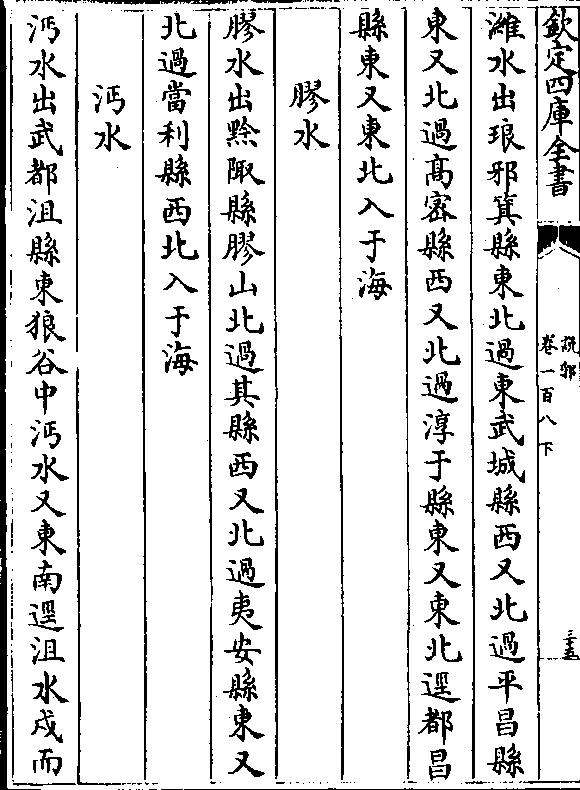 欽定四庫全書
說郛
卷一百八下
三五
濰水出琅邪箕縣東北過東武城縣西又北過平昌縣
東又北過高密縣西又北過淳于縣東又東北逕都昌
縣東又東北入于海
膠水
膠水出黔陬縣膠山北過其縣西又北過夷安縣東又
北過當利縣西北入于海
沔水
沔水出武都沮縣東狼谷中沔水又東南逕沮水戍而